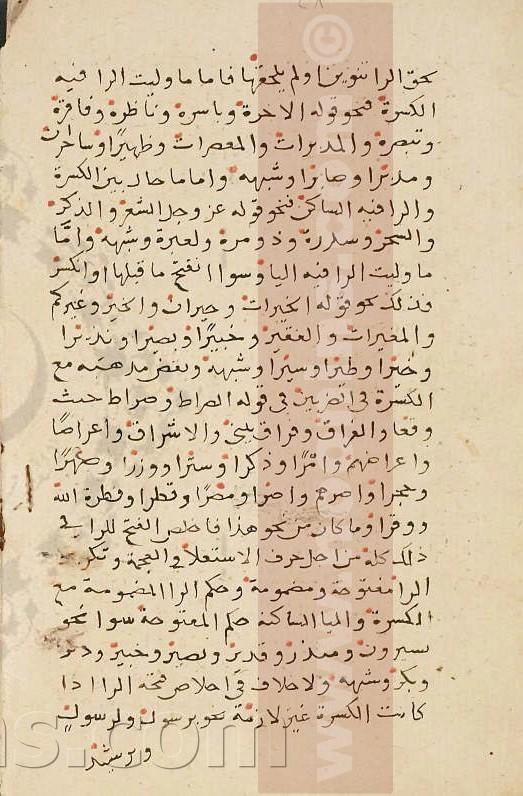 يلحق الرا تنوين او لم يلحقها فاما ما وليت الرا فيه
الكسرة فنحو قوله الاخرة وباسرة وناظرة وفاقرة
وتبصرة والمدبرات والمعصرات وظهيرًا وساحران
ومدبرا وصابرا وشبهه واما ما حال بين الكسرة
والرا فيه الساكن فنحو قوله عز وجل الشعر والذكر
والسحر وسدرة وذو مرة ولعبرة وشبهه وامّا
ما وليت الرا فيه اليا وسوا انفتح ما قبلها او انكسر
فذلك نحو قوله الخيرات وحيران والخير وغيركم
والمغيرات والفقير وخبيرًا وبصيرا ونذيرا
وخيرا وطيرا وسيرا وشبهه ونقض مذهبه مع
الكسرة في الضربين في قوله الصراط وصراط حيث
وقعا والفراق وفراق بيني والاشراق واعراضًا
واعراضهم وامرًا وذكرا وسترا ووزرا وصهرًا
وحجرا واصرهم واصرا ومصرًا وقطرا وفطرة الله
ووقرا وما كان من نحو هذا فاخلص الفتح للرا في
ذلك كله من اجل حرف الاستعلا والعجمة وتكرير
الرا مفتوحة ومضمومة وحكم الرا المضمومة مع
الكسرة واليا الساكنة حكم المفتوحة سوا نحو
يسيرون ومنذر وقدير وبصير وخبير وذكر
وبكر وشبهه ولا خلاف في اخلاص فتحة الرا اذا
كانت الكسرة غير لازمة نحو برسول ولرسول